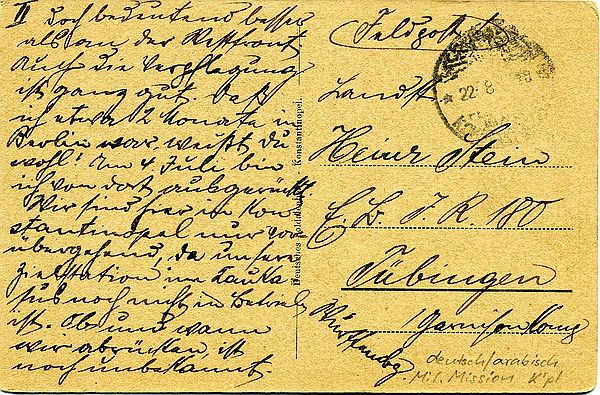 II doch bedeutend besser
als an der Westfront.
Auch die Verpflegung
ist ganz gut. Daß
ich etwa 2 Monate in
Berlin war weißt du
wohl! Am 4 Juli bin
ich von dort ausgerückt.
Wir sind hier in Kon-
stantinopel nur vor-
übergehend, da unsere
Zielstation im Kauka-
sus noch nicht in Betrieb
ist. Ob und wann
wir abrücken, ist
noch unbekannt.
Deutsches Konstantinopel.
Feldpost
22.8
Landst.
Stein
E. B. I. R. 180
Tübingen
Württembg.
deutsch/arabisch
Mil. Mission K'pl